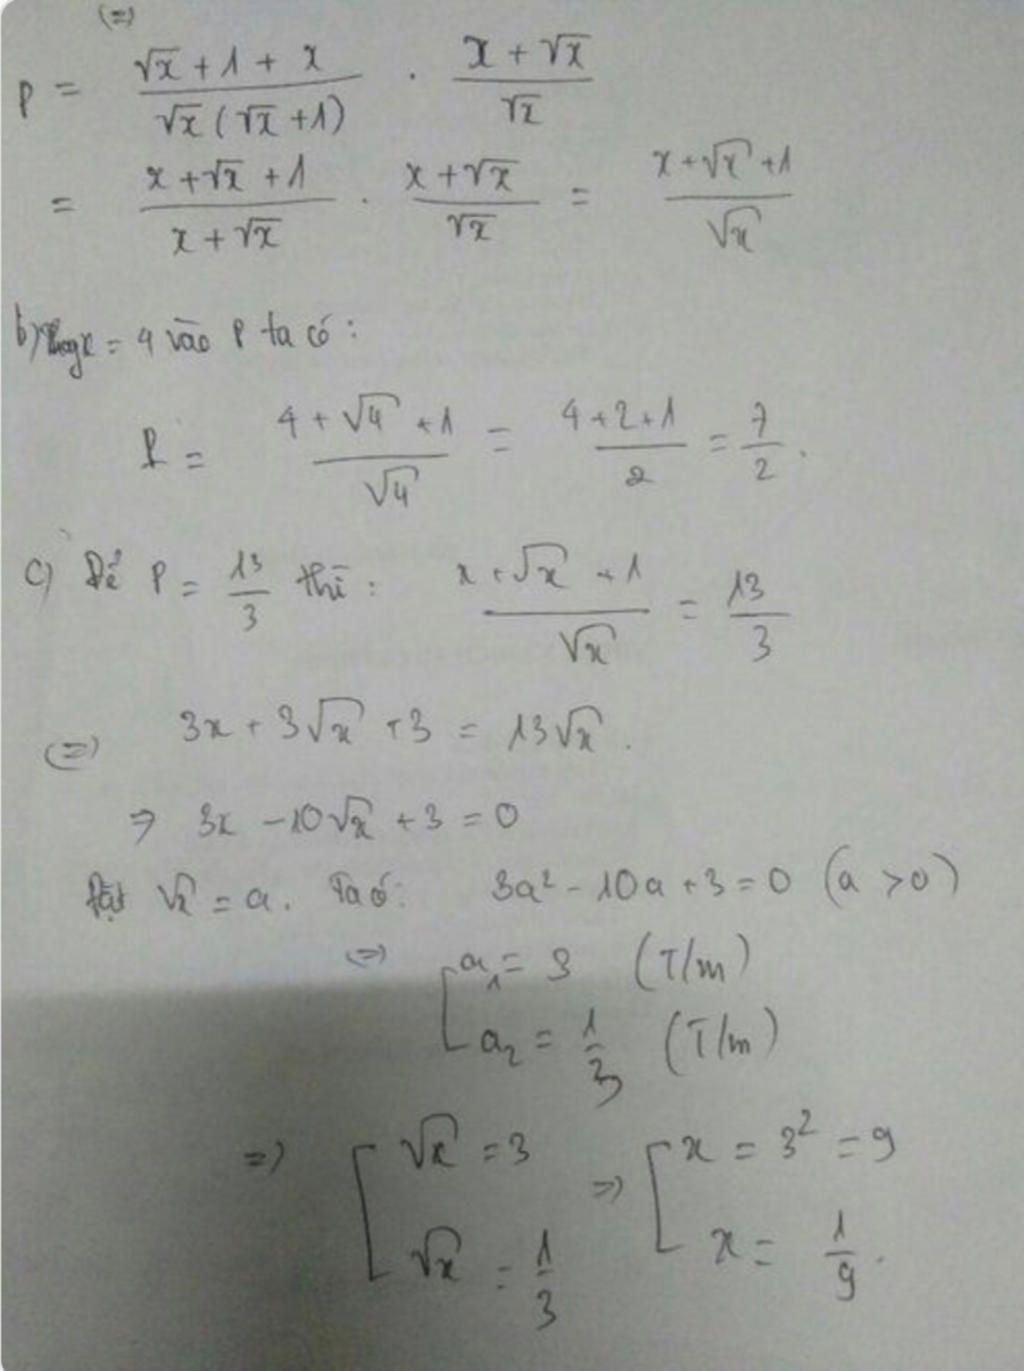 (=)
P = \frac{\sqrt{x} + 1 + x}{\sqrt{x}(\sqrt{x} + 1)} \cdot \frac{x + \sqrt{x}}{\sqrt{x}}
= \frac{x + \sqrt{x} + 1}{x + \sqrt{x}} \cdot \frac{x + \sqrt{x}}{\sqrt{x}} = \frac{x + \sqrt{x} + 1}{\sqrt{x}}
b) Thay x = 4 vào P ta có:
P = \frac{4 + \sqrt{4} + 1}{\sqrt{4}} = \frac{4 + 2 + 1}{2} = \frac{7}{2}.
c) Để P = \frac{13}{3} thì: \frac{x + \sqrt{x} + 1}{\sqrt{x}} = \frac{13}{3}
(=) 3x + 3\sqrt{x} + 3 = 13\sqrt{x}.
=> 3x - 10\sqrt{x} + 3 = 0
Đặt \sqrt{x} = a. Ta có: 3a² - 10a + 3 = 0 (a > 0)
(=) [ a₁ = 3 (T/m)
a₂ = \frac{1}{3} (T/m)
=) [ \sqrt{x} = 3 =) [ x = 3² = 9
\sqrt{x} = \frac{1}{3} x = \frac{1}{9}.